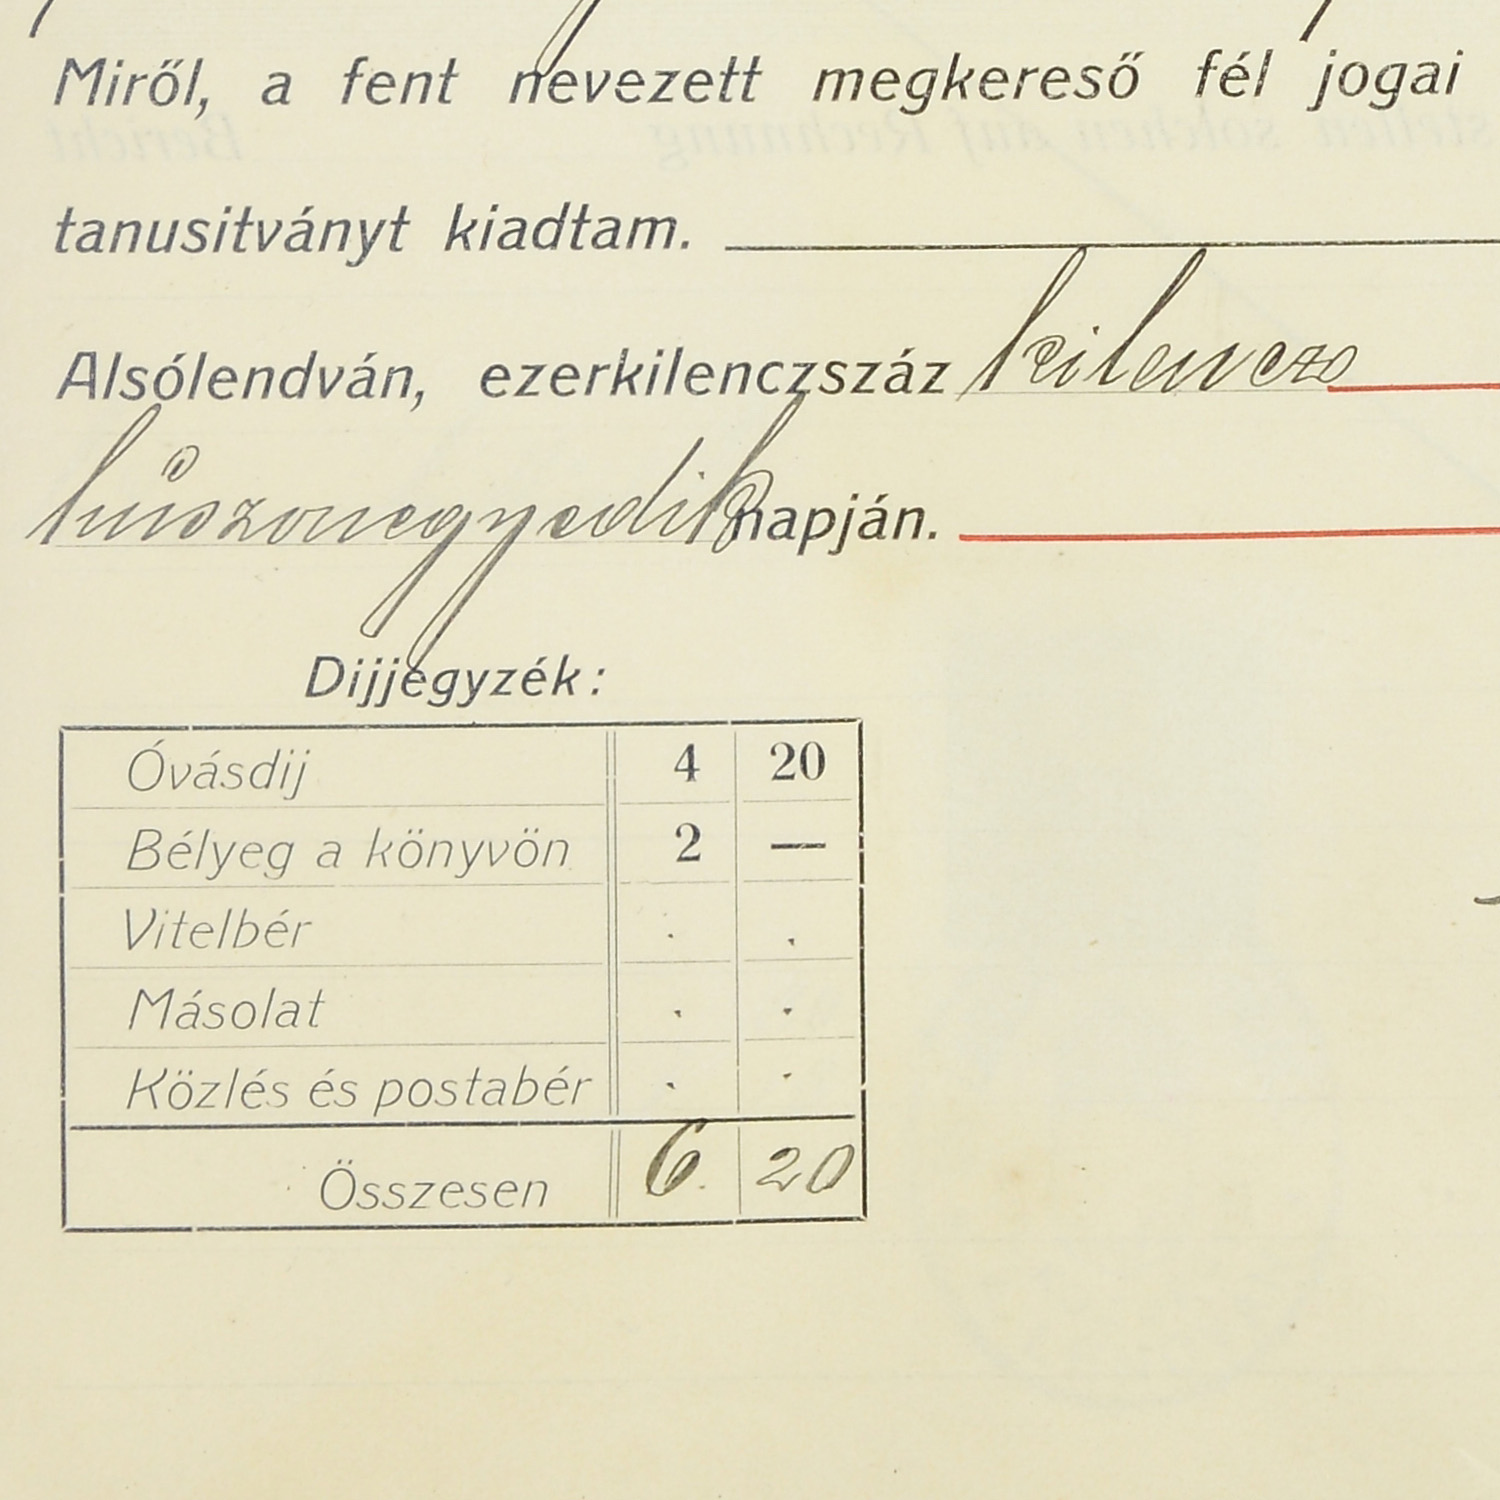 Miről, a fent nevezett megkereső fél jogai
tanusitványt kiadtam.
Alsólendván, ezerkilenczszáz kilencz
huszonegyedik napján.
Dijjegyzék:
Óvásdij 4 20
Bélyeg a könyvön 2 —
Vitelbér . .
Másolat . .
Közlés és postabér . .
Összesen 6 20